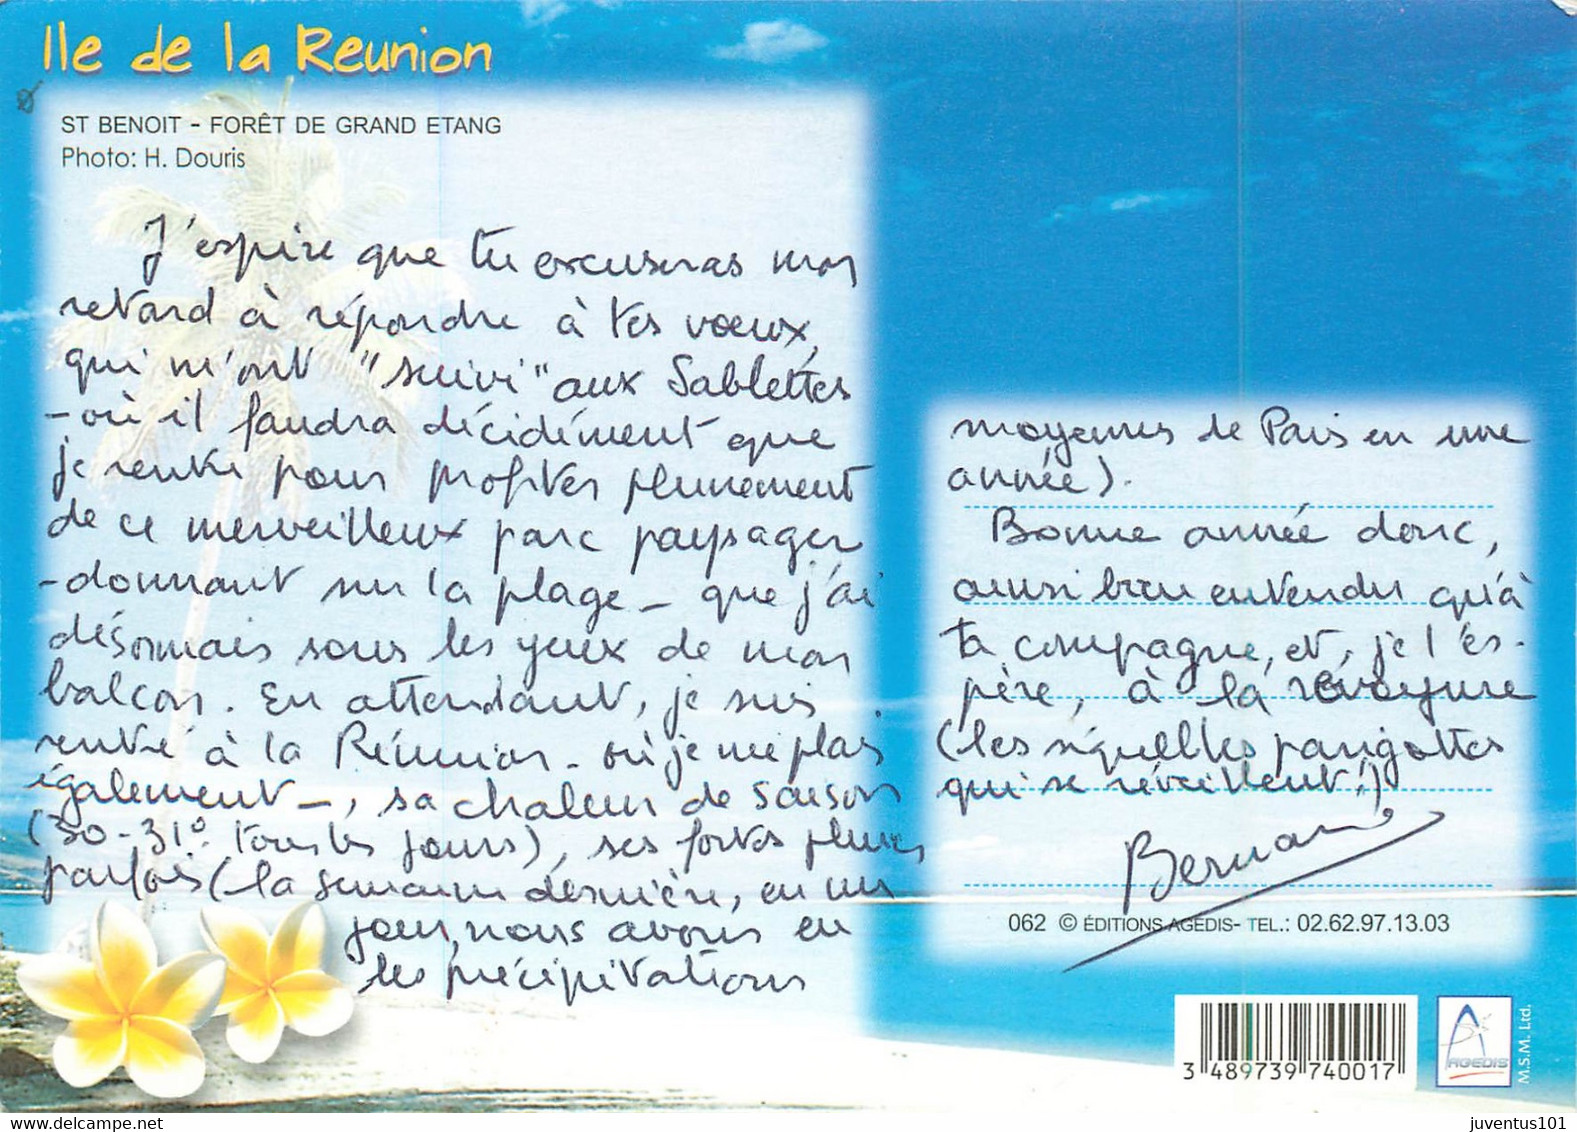 Ile de la Reunion
ST BENOIT - FORÊT DE GRAND ETANG
Photo: H. Douris
J'espère que tu excuseras mon
retard à répondre à tes voeux,
qui m'ont "suivi" aux Sablettes
- où il faudra décidément que
je rentre pour profiter pleinement
de ce merveilleux parc paysager
- donnant sur la plage - que j'ai
désormais sous les yeux de mon
balcon. En attendant, je suis
rentré à la Réunion - où je me plais
également -, sa chaleur de saison
(30-31° tous les jours), ses fortes pluies
parfois (la semaine dernière, en un
jour, nous avons eu
les précipitations
moyennes de Paris en une
année).
Bonne année donc,
aussi bien entendu qu'à
ta compagne, et, je l'es-
père, à la revoyure
(les séquelles parigottes
qui se réveillent!)
Bernard
062 © ÉDITIONS AGÉDIS- TEL.: 02.62.97.13.03
3 489739 740017
AGEDIS
M.S.M. Ltd.
juventus101